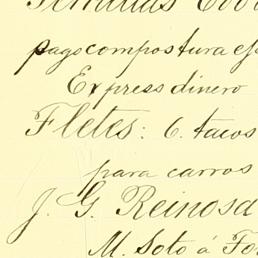 pago compostura
Express dinero
Fletes: 6. tacos
para carros
J. G. Reinosa
M. Soto á